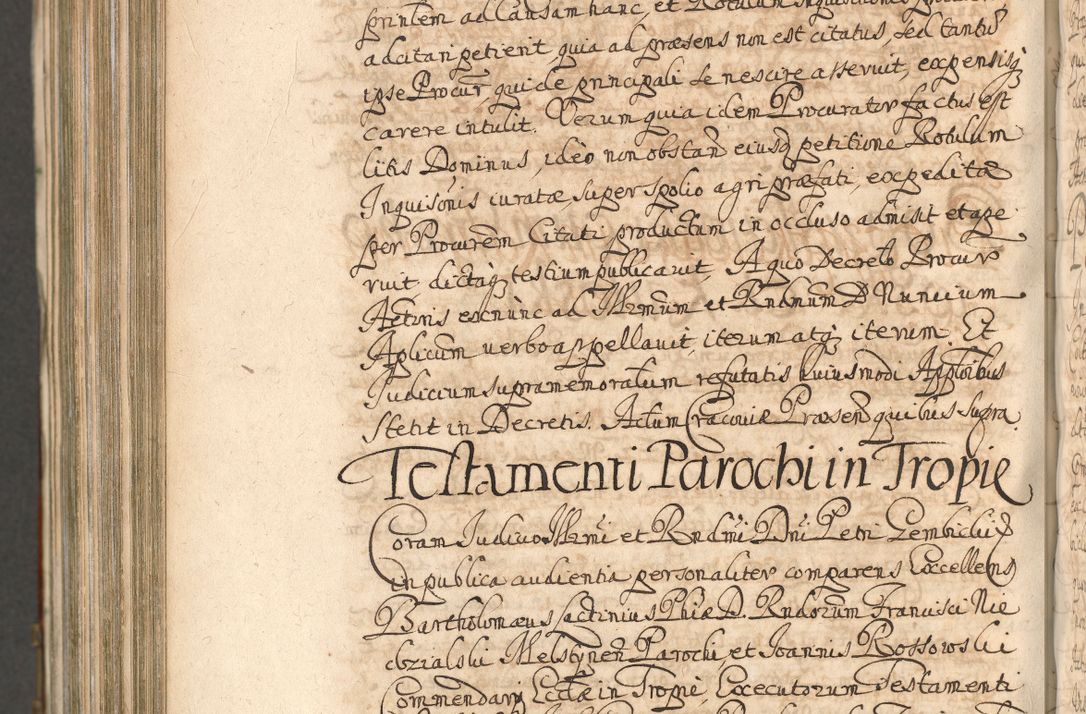 printem ad Causam hanc, et Rotulum Inquisitionis
adcitari petierit, quia ad præsens non est citatus, sed tantū
ipse Procur, qui de principali se nescire asseruit, expensisq;
carere intulit. Verum quia idem Procurator factus est
litis Dominus, ideo non obstan eiusd petitione Rotulum
Inquisonis iuratæ super spolio agri præfati, expeditæ
per Procurem Citati productum in occluso admisit et ape
ruit dictaq; testium publicavit, A quo Decreto Procur
Actoris exnunc ad Illmum et Rndmum D Nuncium
Aplicum verbo appellavit, iterum atq; iterum. Et
Judicium supramemoratum refutatis huiusmodi Applōibus
stetit in Decretis. Actum Cracoviæ Præsen quibus supra.
Testamenti Parochi in Tropie
Coram Judicio Illmi et Rndmi Dni Petri Gembicki &
in publica audientia personaliter comparens Excellens
Bartholomæus Sactinius Phiæ D. Rndorum Francisci Nie
dzialski Melstynen Parochi, et Joannis Rossowski
Commendarij Ecclæ in Tropie, Executorum Testamenti